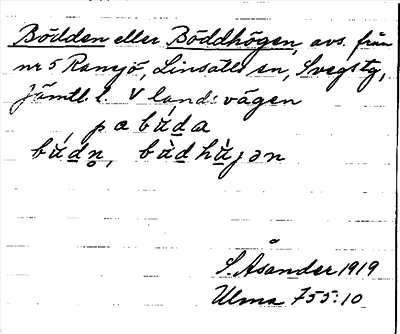 Bödden eller Böddhögen, avs. från
nr 5 Ransjö, Linsälls sn, Svegs tg,
Jämtl. l. V landsvägen
pæ bùda
bùdn̥, bùdhùjən
S. Åsander 1919
Ulma 755:10